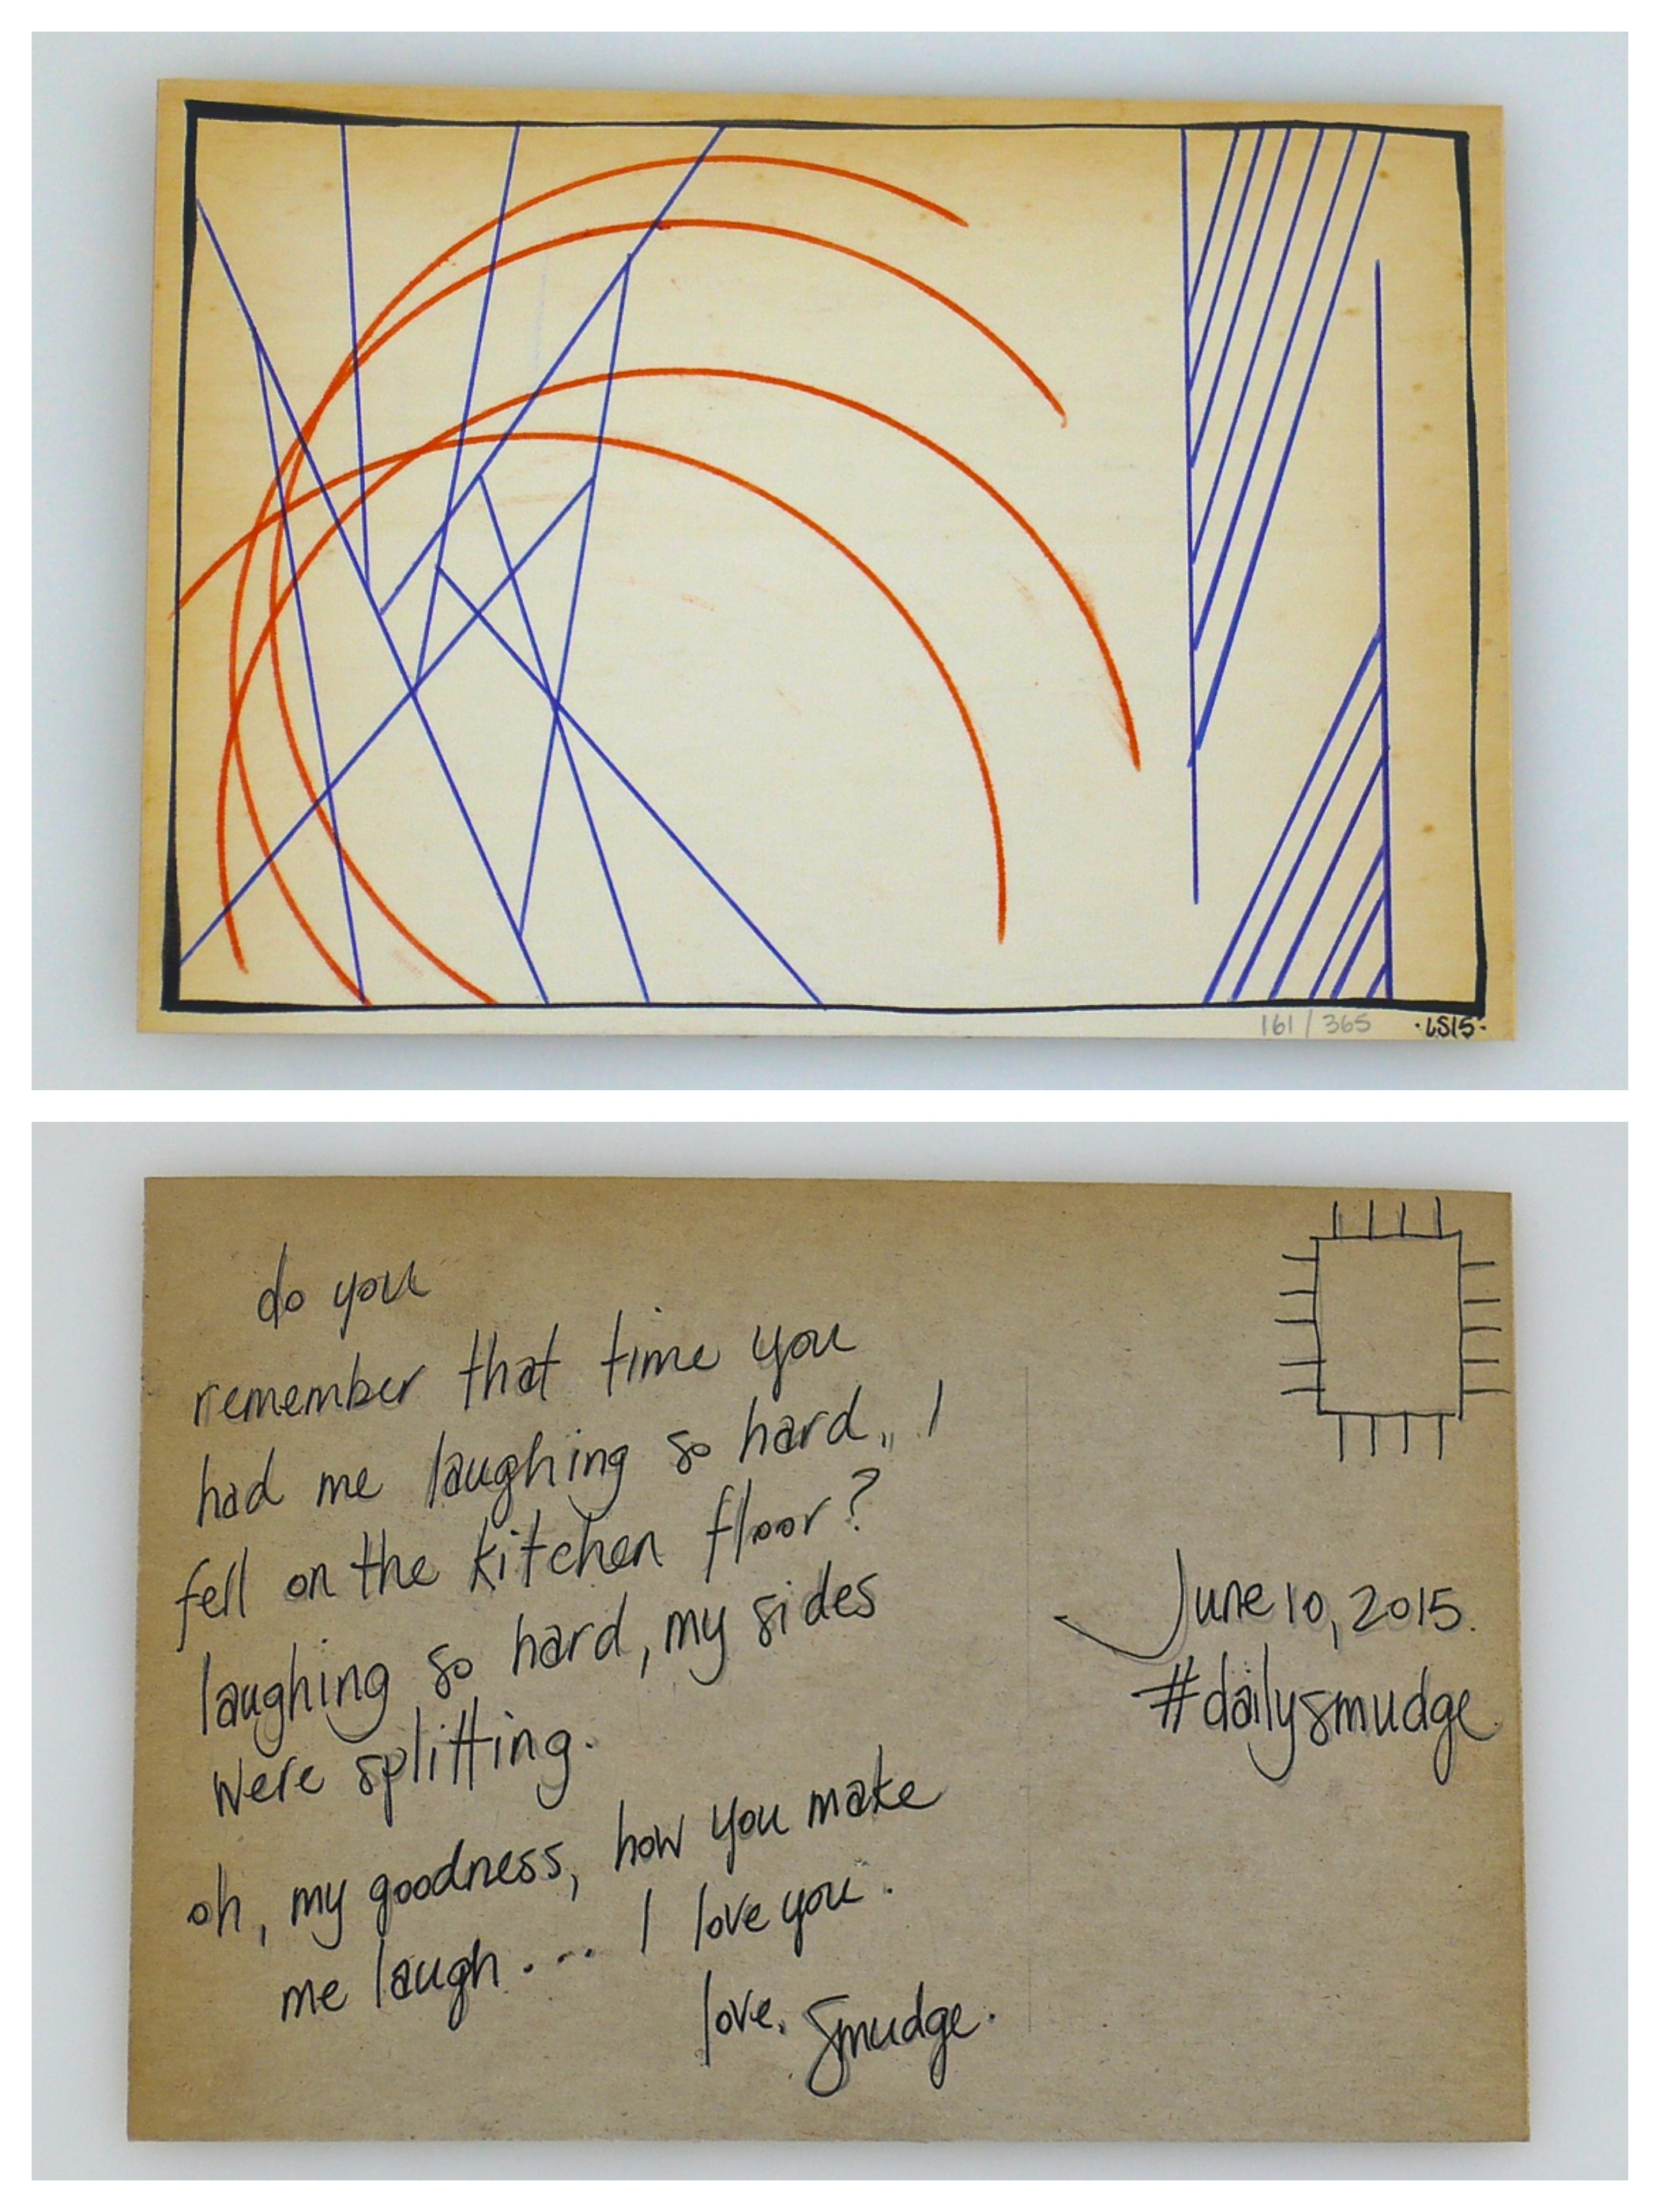 161/365 ·LS15·
do you
remember that time you
had me laughing so hard,, I
fell on the kitchen floor?
laughing so hard, my sides
were splitting.
oh, my goodness, how you make
me laugh.... I love you.
love, smudge.
June 10, 2015.
#dailysmudge